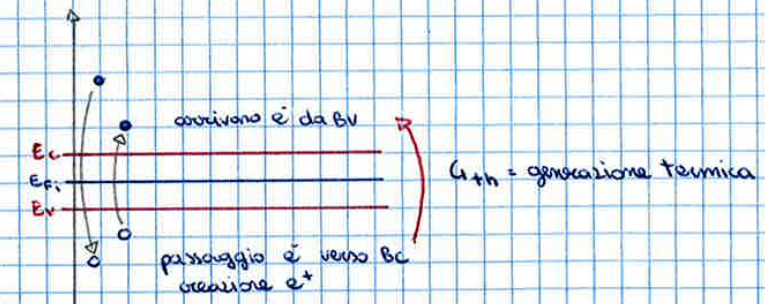 arrivano e⁻ da BV
Ec
EFi
Ev
Gth = generazione termica
passaggio e⁻ verso BC
creazione e⁺